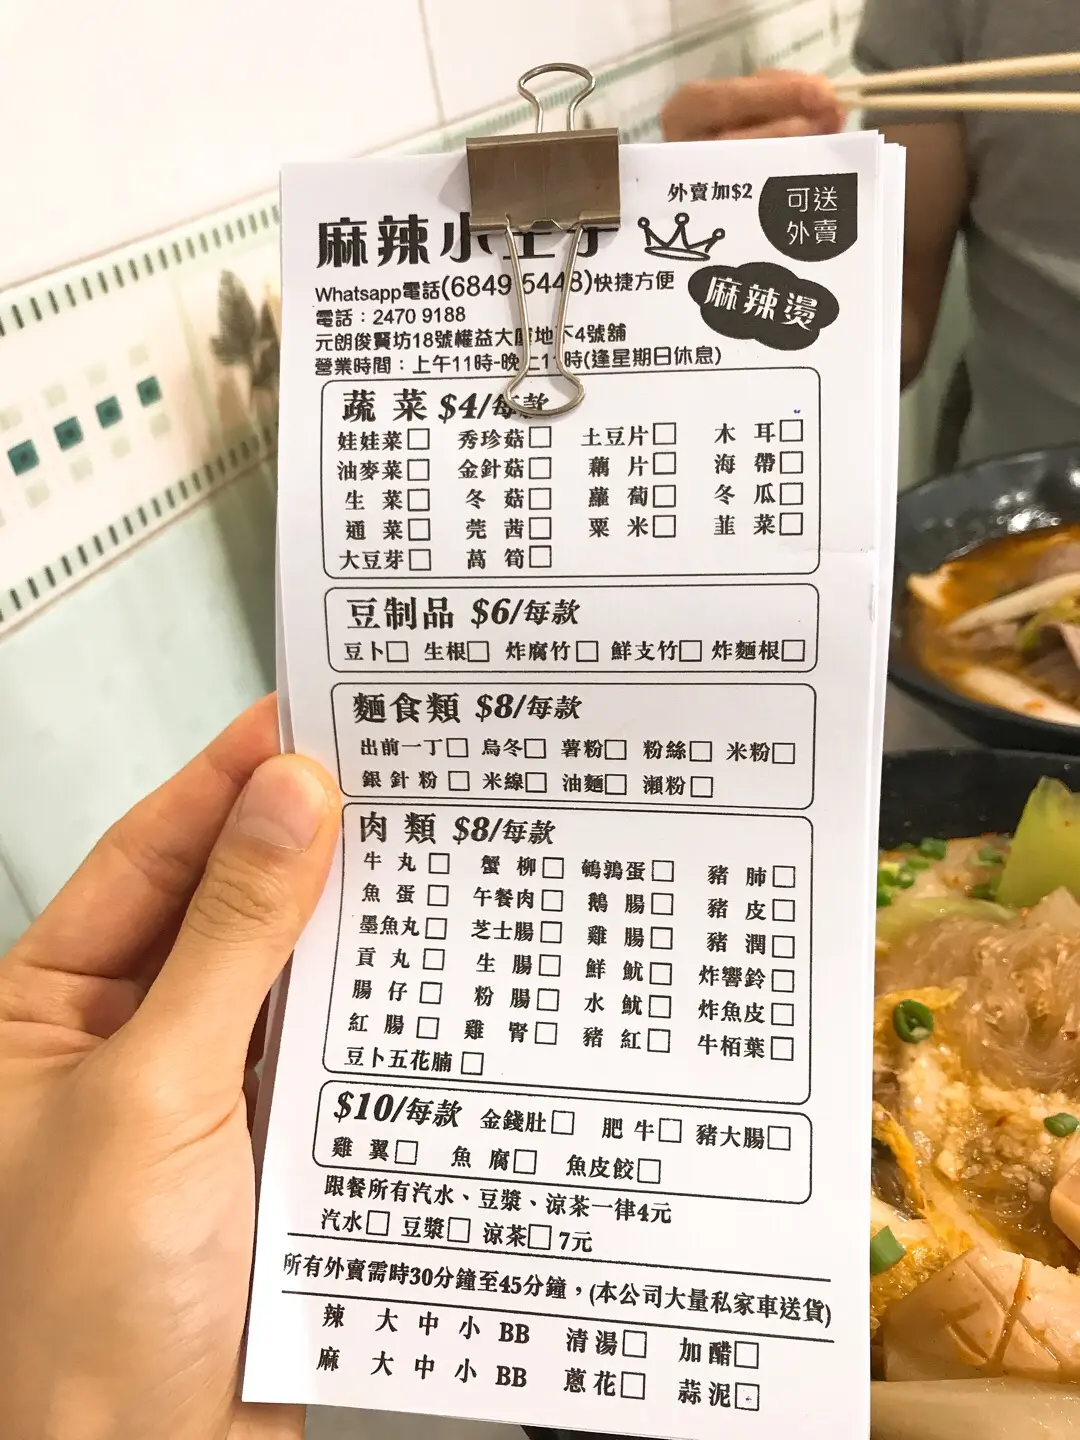 外賣加$2
可送
外賣
麻辣小
Whatsapp電話(6849 5448)快捷方便
麻辣燙
電話：2470 9188
元朗俊賢坊18號權益大廈地下4號舖
營業時間：上午11時-晚上11時(逢星期日休息)
蔬菜 $4/每款
娃娃菜□ 秀珍菇□ 土豆片□ 木耳□
油麥菜□ 金針菇□ 藕片□ 海帶□
生菜□ 冬菇□ 蘿蔔□ 冬瓜□
通菜□ 莞茜□ 粟米□ 韮菜□
大豆芽□ 萵筍□
豆制品 $6/每款
豆卜□ 生根□ 炸腐竹□ 鮮支竹□ 炸麵根□
麵食類 $8/每款
出前一丁□ 烏冬□ 薯粉□ 粉絲□ 米粉□
銀針粉□ 米線□ 油麵□ 瀨粉□
肉類 $8/每款
牛丸□ 蟹柳□ 鵪鶉蛋□ 豬肺□
魚蛋□ 午餐肉□ 鵝腸□ 豬皮□
墨魚丸□ 芝士腸□ 雞腸□ 豬潤□
貢丸□ 生腸□ 鮮魷□ 炸響鈴□
腸仔□ 粉腸□ 水魷□ 炸魚皮□
紅腸□ 雞腎□ 豬紅□ 牛栢葉□
豆卜五花腩□
$10/每款 金錢肚□ 肥牛□ 豬大腸□
雞翼□ 魚腐□ 魚皮餃□
跟餐所有汽水、豆漿、涼茶一律4元
汽水□ 豆漿□ 涼茶□7元
所有外賣需時30分鐘至45分鐘，(本公司大量私家車送貨)
辣 大 中 小 BB 清湯□ 加醋□
麻 大 中 小 BB 蔥花□ 蒜泥□